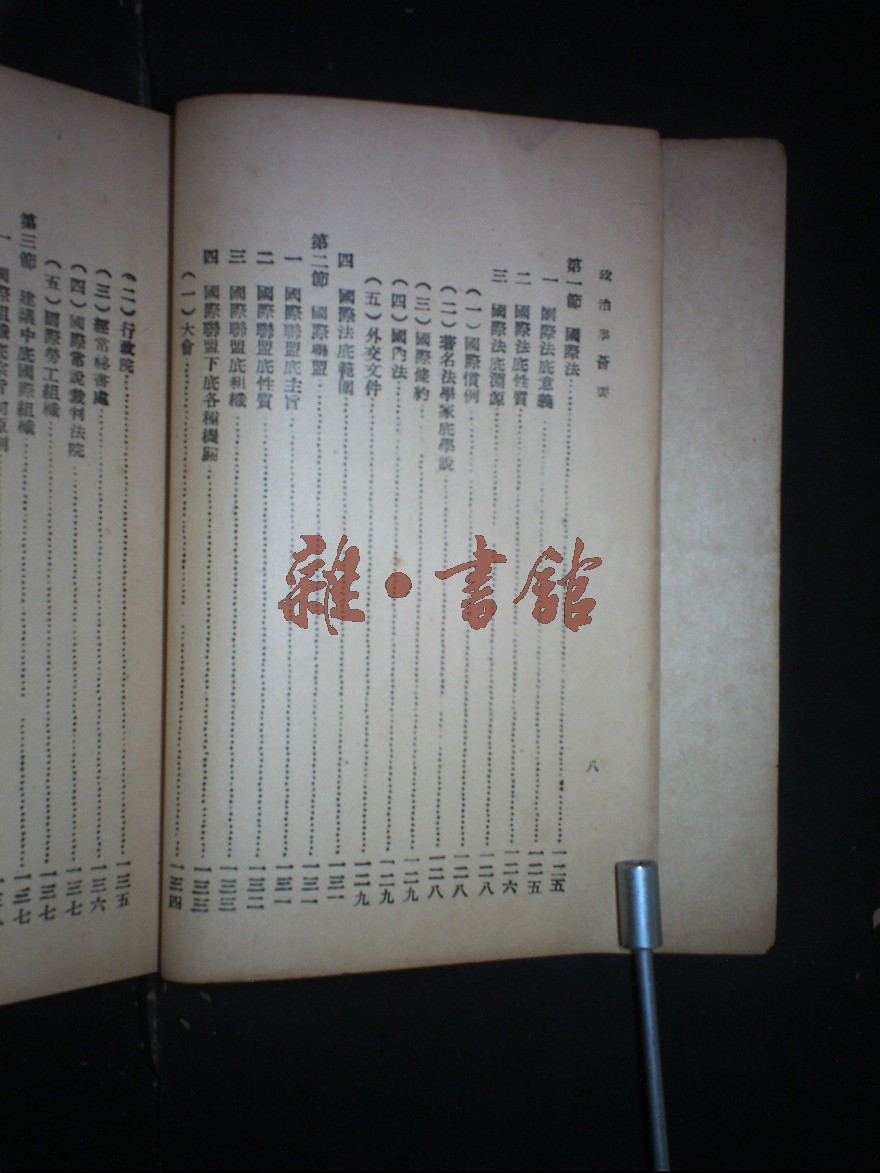 政治學薈要
第一節 國際法 一二五
一 國際法底意義 一二五
二 國際法底性質 一二六
三 國際法底淵源 一二八
(一)國際慣例 一二八
(二)著名法學家底學說 一二八
(三)國際條約 一二九
(四)國內法 一二九
(五)外交文件 一二九
四 國際法底範圍 一三一
第二節 國際聯盟 一三一
一 國際聯盟底主旨 一三一
二 國際聯盟底性質 一三二
三 國際聯盟底組織 一三三
四 國際聯盟下底各種機關 一三三
(一)大會 一三四
八
(二)行政院 一三五
(三)經常祕書處 一三六
(四)國際常設裁判法院 一三七
(五)國際勞工組織 一三七
第三節 建議中底國際組織 一三七
一 國際組織底宗旨和原則
雜•書館